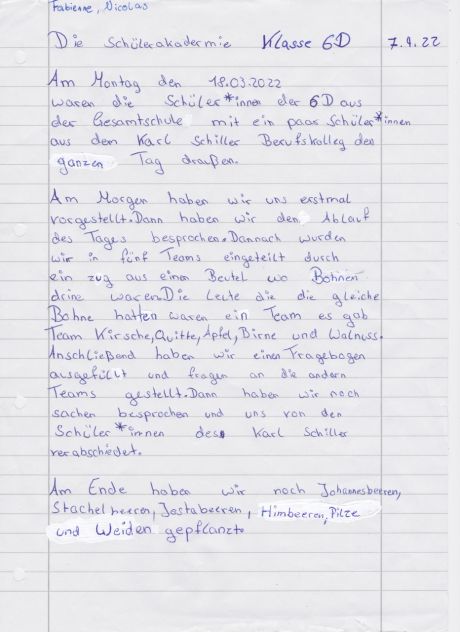 Fabienne, Nicolas
Die Schülerakadermie Klasse 6D 7.4.22
Am Montag den 18.03.2022
waren die Schüler*innen der 6D aus
der Gesamtschule mit ein paar Schüler*innen
aus dem Karl Schiller Berufskolleg den
ganzen Tag draußen.
Am Morgen haben wir uns erstmal
vorgestellt. Dann haben wir den Ablauf
des Tages besprochen. Dannach wurden
wir in fünf Teams eingeteilt durch
ein zug aus einen Beutel wo Bohnen
drine waren. Die Leute die die gleiche
Bohne hatten waren ein Team es gab
Team Kirsche, Quitte, Apfel, Birne und Walnuss.
Anschließend haben wir einen Fragebogen
ausgefüllt und fragen an die andern
Teams gestellt. Dann haben wir noch
sachen besprochen und uns von den
Schüler*innen des Karl Schiller
verabschiedet.
Am Ende haben wir noch Johannesbeeren,
Stachelbeeren, Jostabeeren, Himbeeren, Pilze
und Weiden gepflanzt.